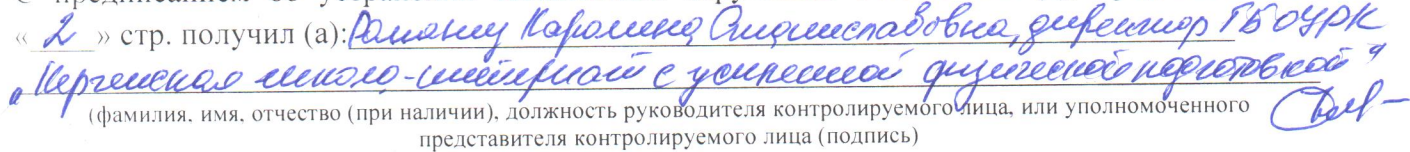 « 2 » стр. получил (а): Романи Каролина Станиславовна, директор ГБОУРК
"Керченская школа-интернат с усиленной физической подготовкой"
(фамилия, имя, отчество (при наличии), должность руководителя контролируемого лица, или уполномоченного
представителя контролируемого лица (подпись)